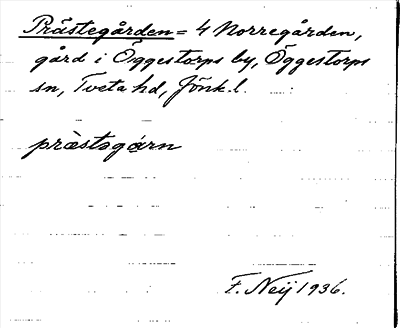 Prästegården = 4 Norregården,
gård i Öggestorps by, Öggestorps
sn, Tveta hd, Jönk. l.
prästsgárn
F. Neij 1936.